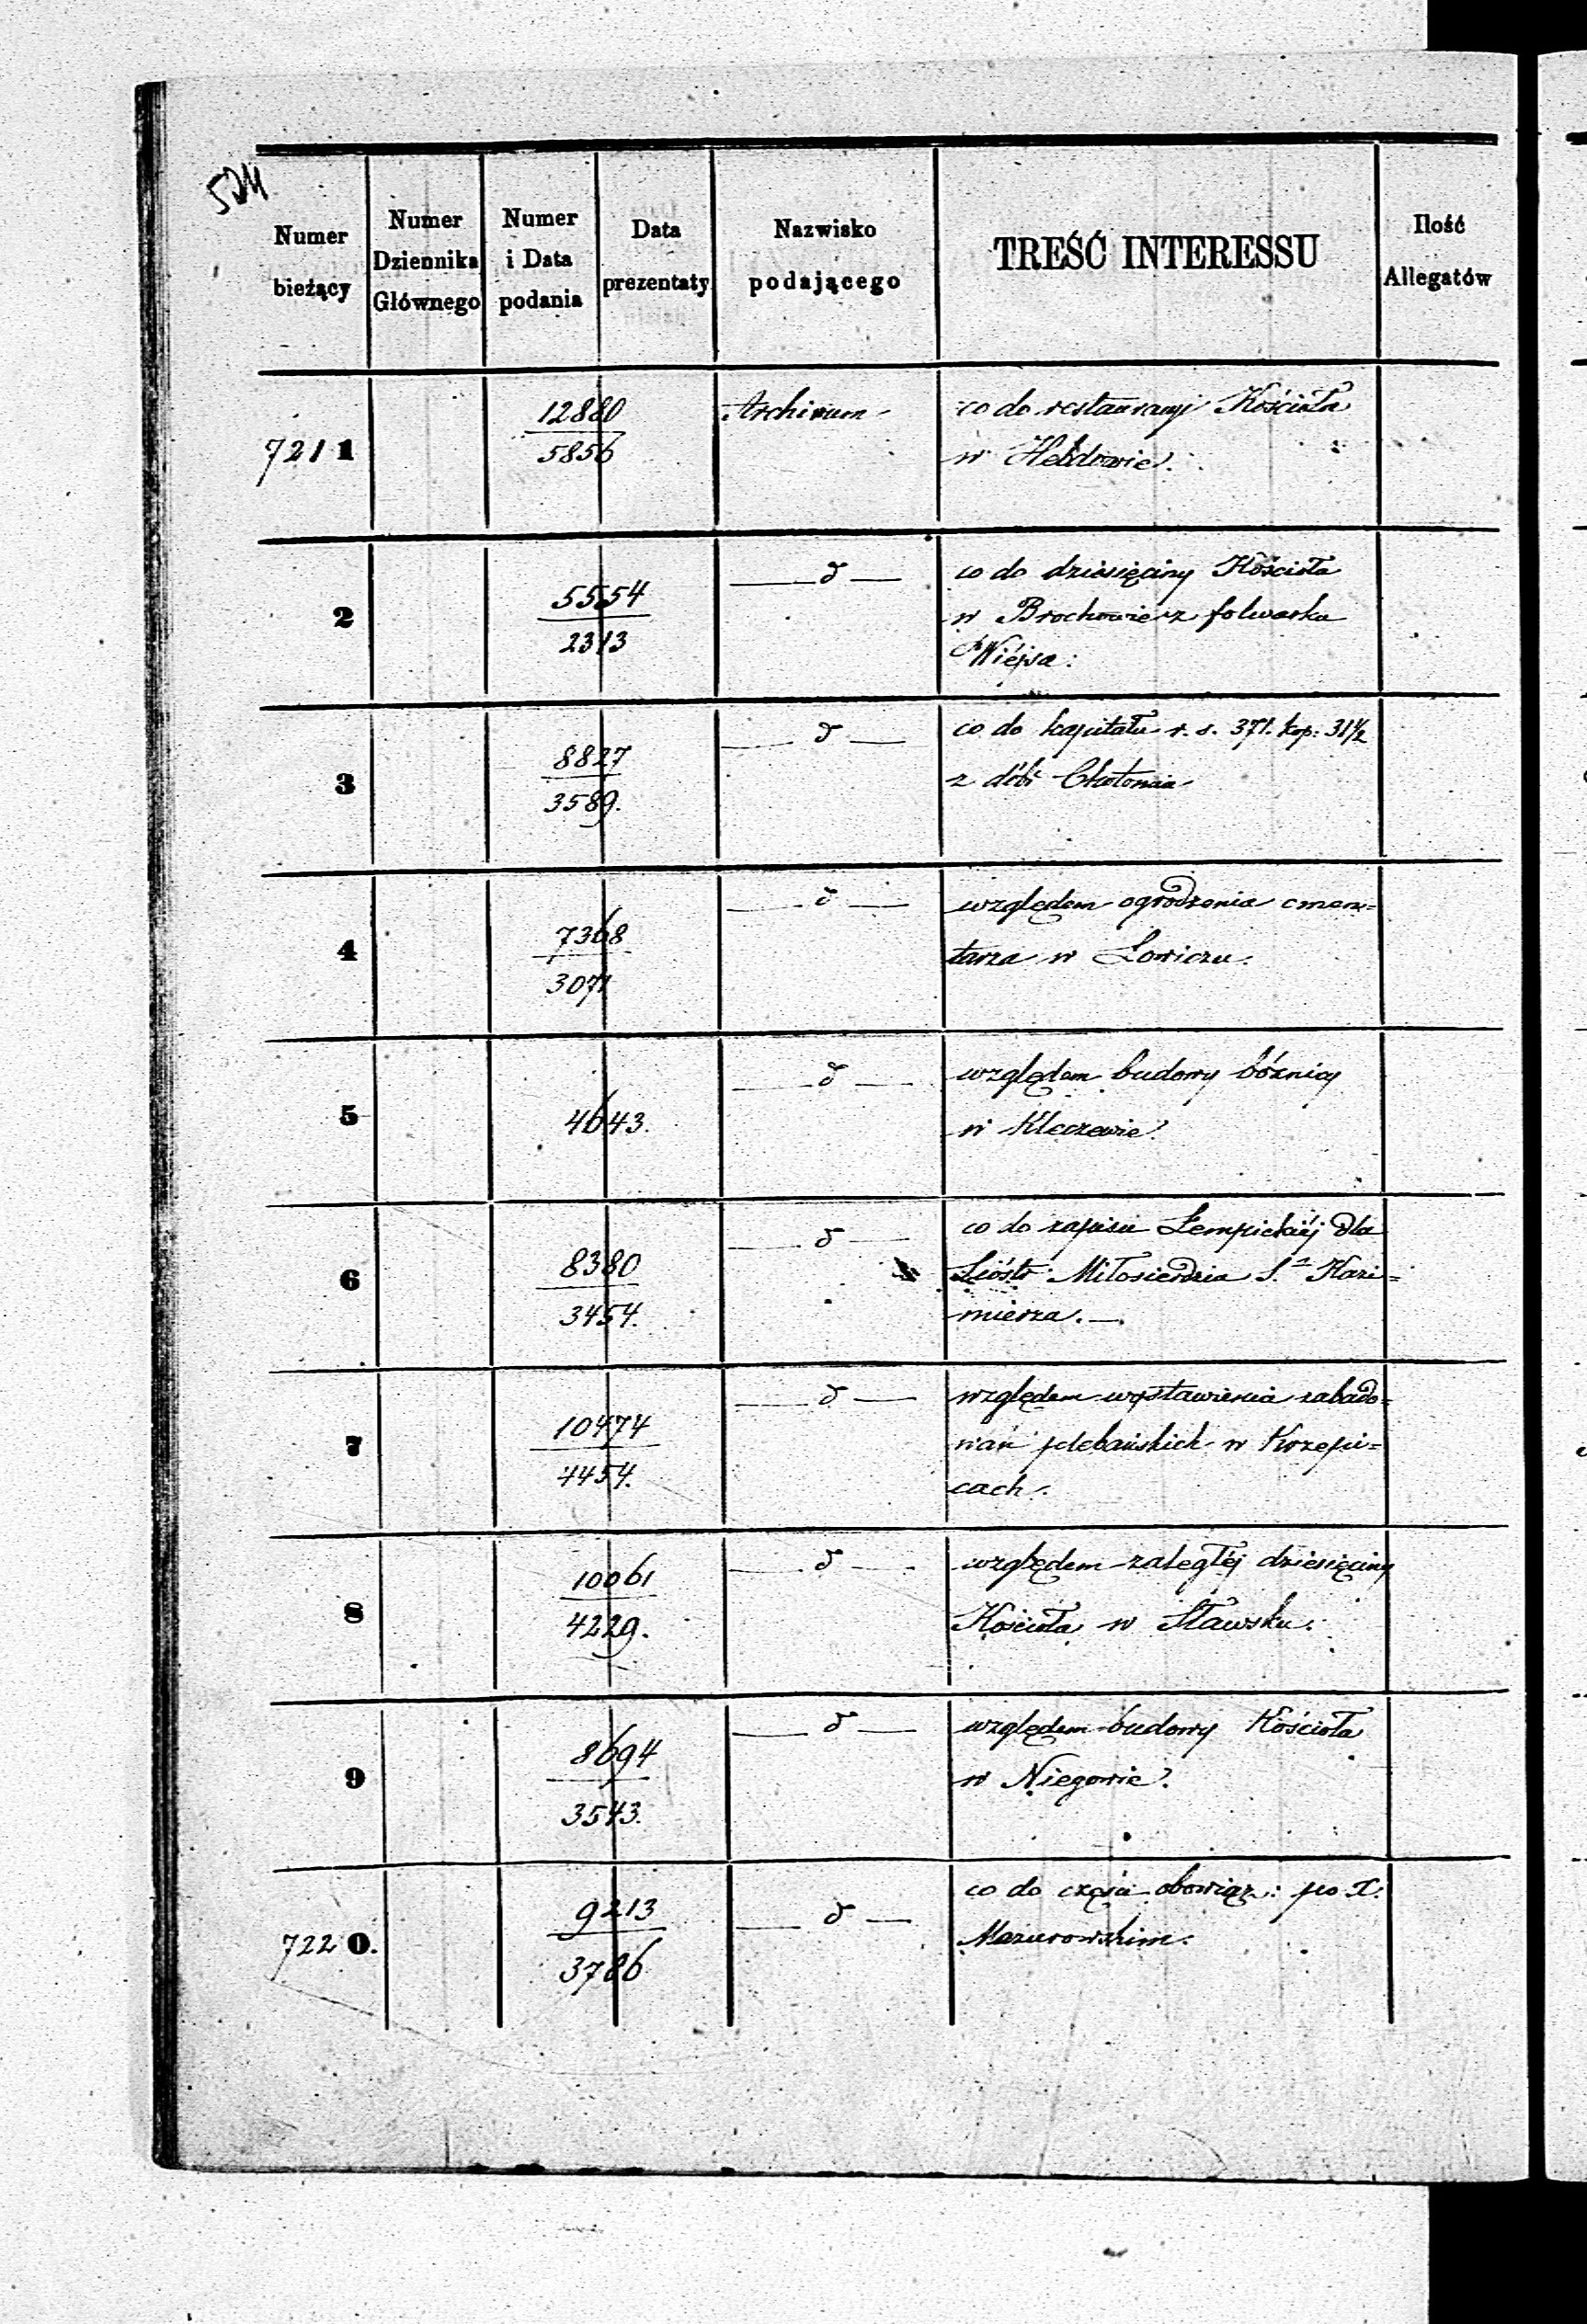 524
Numer bieżący
Numer Dziennika Głównego
Numer i Data podania
Data prezentaty
Nazwisko podającego
TREŚĆ INTERESSU
Ilość Allegatów
7211 12880 Archivum co do restauracyi Kościoła
5856 w Hebdowie.
2 5554 — d — co do dziesięciny Kościoła
2313 w Brochowie z folwarku
Wiejsca:
3 8827 — d — co do kapitału r. s. 371. kop: 31½
3589. z dóbr
4 7368 — d — względem ogrodzenia cmen=
3071 tarza w Łowiczu.
5 4643. — d — względem budowy bóżnicy
w Kleczewie.
6 8380 — d — co do zapisu Łempickiéj dla
3454. Sióstr Miłosierdzia S. Kazi=
mierza. —
7 10474 — d — względem wystawienia zabudo=
4454. wań plebańskich w Krzepi=
cach.
8 10061 — d — względem zaległéj dziesięciny
4229. Kościoła w Sławsku.
9 8694 — d — względem budowy Kościoła
3543. w Niegowie.
7220. 9213 — d — co do części obowiąz: po X.
3786 Mazurowskim.